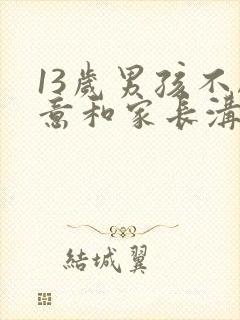 13歲男孩不
意和家長溝
結城翼